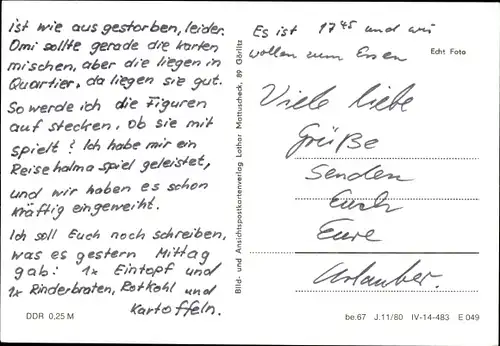 ist wie aus gestorben, leider.
Omi sollte gerade die Karten
mischen, aber die liegen in
Quartier, da liegen sie gut.
So werde ich die Figuren
auf stecken, ob sie mit
spielt? Ich habe mir ein
Reisehalma spiel geleistet,
und wir haben es schon
kräftig eingeweiht.
Ich soll Euch noch schreiben,
was es gestern Mittag
gab: 1x Eintopf und
1x Rinderbraten, Rotkohl und
Kartoffeln.
DDR 0,25 M
Bild- und Ansichtspostkartenverlag Lothar Mattuscheck, 89 Görlitz
Es ist 17 45 und wir
wollen zum Essen
Echt Foto
Viele liebe
Grüße
senden
Euch
Eure
Urlauber.
be.67 J.11/80 IV-14-483 E 049